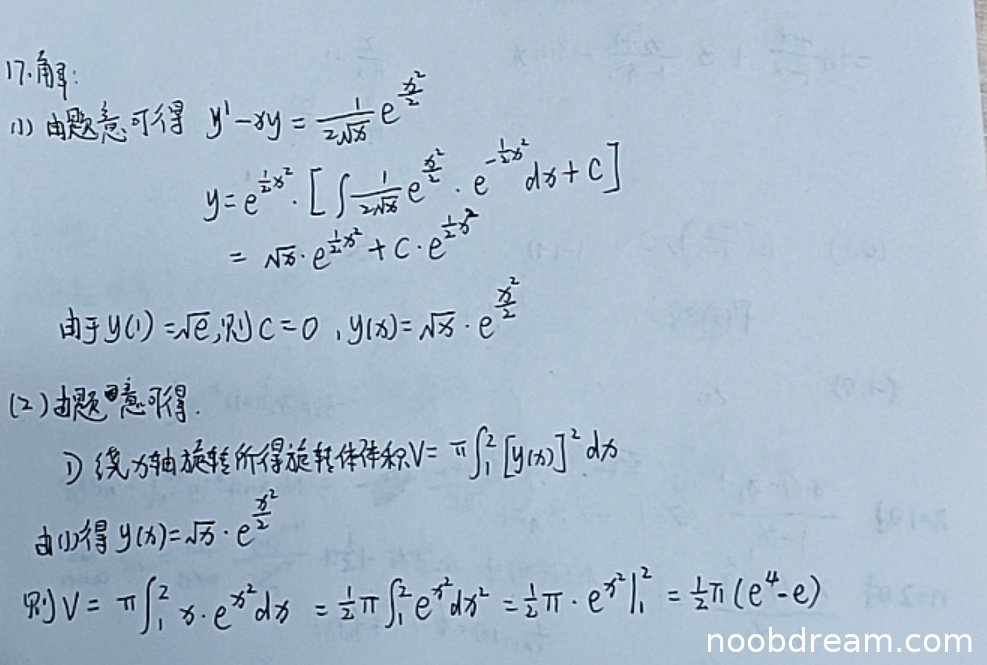 17.解:
(1) 由题意可得 y' - xy = \frac{1}{2\sqrt{x}} e^{\frac{x^2}{2}}
y = e^{\frac{1}{2}x^2} · [ ∫ \frac{1}{2\sqrt{x}} e^{\frac{x^2}{2}} · e^{-\frac{1}{2}x^2} dx + C ]
= \sqrt{x} · e^{\frac{1}{2}x^2} + C · e^{\frac{1}{2}x^2}
由于 y(1) = \sqrt{e}, 则 C = 0, y(x) = \sqrt{x} · e^{\frac{x^2}{2}}
(2) 由题意可得.
1) 绕x轴旋转所得旋转体体积 V = π ∫_1^2 [y(x)]^2 dx
由(1)得 y(x) = \sqrt{x} · e^{\frac{x^2}{2}}
则 V = π ∫_1^2 x · e^{x^2} dx = \frac{1}{2} π ∫_1^2 e^{x^2} dx^2 = \frac{1}{2} π · e^{x^2} |_1^2 = \frac{1}{2} π (e^4 - e)
noobdream.com